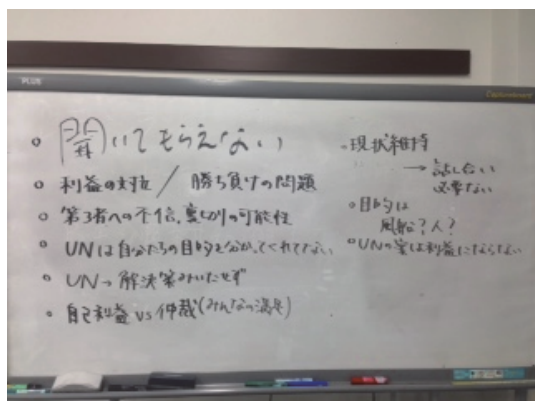 PLUS
Captureboard
○ 開いてもらえない
○ 利益の対立 / 勝ち負けの問題
○ 第3者への不信、裏切りの可能性
○ UNは自分たちの目的を分かってくれてない
○ UN→解決策みいだせず
○ 自己利益 vs 仲裁(みんなの満足)
○現状維持
→ 話し合い
必要ない
○目的は
風船?人?
○UNの案は利益にならない